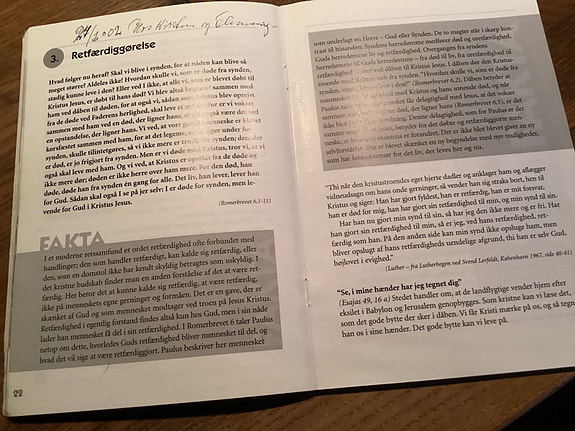 3. Retfærdiggørelse
Hvad følger nu heraf? Skal vi blive i synden, for at nåden kan blive så
meget større? Aldeles ikke! Hvordan skulle vi, som er døde fra synden,
stadig kunne leve i den? Eller ved I ikke, at alle vi, som er blevet døbt til
Kristus Jesus, er døbt til hans død? Vi blev altså begravet sammen med
ham ved dåben til døden, for at også vi, sådan som Kristus blev oprejst
fra de døde ved Faderens herlighed, skal leve et nyt liv. For er vi vokset
sammen med ham ved en død, der ligner hans, skal vi også være det ved
en opstandelse, der ligner hans. Vi ved, at vort gamle menneske er blevet
korsfæstet sammen med ham, for at det legeme, som ligger under for
synden, skulle tilintetgøres, så vi ikke mere er trælle for synden; den, der
er død, er jo frigjort fra synden. Men er vi døde med Kristus, tror vi, at vi
også skal leve med ham. Og vi ved, at Kristus er opstået fra de døde og
ikke mere dør; døden er ikke herre over ham mere. For den død, han
døde, døde han fra synden én gang for alle. Det liv, han lever, lever han
for Gud. Sådan skal også I se på jer selv: I er døde for synden, men le-
vende for Gud i Kristus Jesus.
(Romerbrevet 6,1-11)
FAKTA
I et moderne retssamfund er ordet retfærdighed ofte forbundet med
handlinger; den som handler retfærdigt, kan kalde sig retfærdig, eller
den, som en domstol ikke har kendt skyldig betragtes som uskyldig. I
det kristne budskab finder man en anden forståelse af det at være ret-
færdig. Her beror det at kunne kalde sig retfærdig, at være retfærdig,
ikke på menneskets egne gerninger og formåen. Det er en gave, der er
skænket af Gud og som mennesket modtager ved troen på Jesus Kristus.
Retfærdighed i egentlig forstand findes altså kun hos Gud, men i sin nåde
lader han mennesket få del i sin retfærdighed. I Romerbrevet 6 taler Paulus
netop om dette, hvorledes Guds retfærdighed bliver menneske til del, og
hvad det vil sige at være retfærdiggjort. Paulus beskriver her mennesket
22
som underlagt en Herre – Gud eller Synden. De to magter står i skarp kon-
trast til hinanden: Syndens herredømme medfører død og uretfærdighed,
Guds herredømme liv og retfærdighed. Overgangen fra syndens
herredømme til Guds herredømme – fra død til liv, fra uretfærdighed til
retfærdighed – sker ved dåben til Kristus Jesus. I dåben dør den kristne
troende med Kristus fra synden. "Hvordan skulle vi, som er døde fra
synden, stadig kunne leve i den?" (Romerbrevet 6,2). Dåben betyder at
mennesket får del i Kristus og hans sonende død, og når
Paulus taler om, at mennesket får delagtighed med Jesus, at det er
døbt til hans død, der ligner hans (Romerbrevet 6,5); er det
ikke blot
"Thi når den kristustroendes eget hjerte dadler og anklager ham og aflægger
vidnesudsagn om hans onde gerninger, så vender han sig straks bort, hen til
Kristus og siger: Han har gjort fyldest, han er retfærdig, han er mit forsvar,
han er død for mig, han har gjort sin retfærdighed til min, og min synd til sin.
Har han nu gjort min synd til sin, så har jeg den ikke mere og er fri. Har
han gjort sin retfærdighed til min, så er jeg, ved hans retfærdighed, ret-
færdig som han. På den anden side kan min synd ikke opsluge ham, men
bliver opslugt af hans retfærdigheds uendelige afgrund, thi han er selv Gud,
højlovet i evighed."
(Luther – fra Lutherbogen ved Svend Lerfeldt, København 1967, side 40-41)
"Se, i mine hænder har jeg tegnet dig"
(Esajas 49, 16 a) Stedet handler om, at de landflygtige vender hjem efter
eksilet i Babylon og Jerusalem genopbygges. Som kristne kan vi læse det,
som det gode bytte der sker i dåben. Vi får Kristi mærke på os, og så tegn
han os i sine hænder. Det gode bytte kan vi leve på.